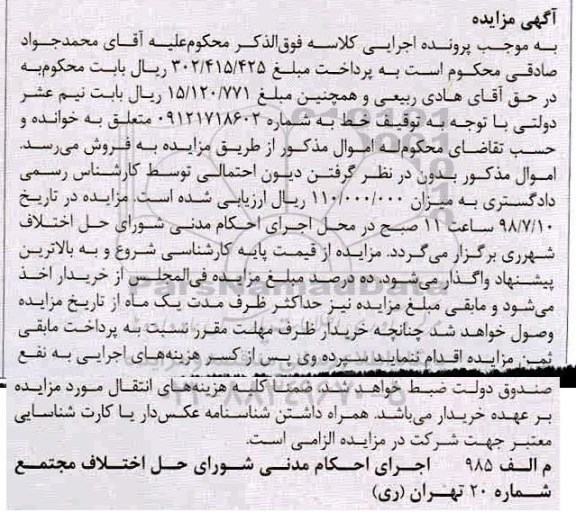 آگهی مزایده
به موجب پرونده اجرایی کلاسه فوق‌الذکر محکوم‌علیه آقای محمدجواد
صادقی محکوم است به پرداخت مبلغ ۳۰۲/۴۱۵/۴۲۵ ریال بابت محکوم‌به
در حق آقای هادی ربیعی و همچنین مبلغ ۱۵/۱۲۰/۷۷۱ ریال بابت نیم عشر
دولتی با توجه به توقیف خط به شماره ۰۹۱۲۱۷۱۸۶۰۲ متعلق به خوانده و
حسب تقاضای محکوم‌له اموال مذکور از طریق مزایده به فروش می‌رسد.
اموال مذکور بدون در نظر گرفتن دیون احتمالی توسط کارشناس رسمی
دادگستری به میزان ۱۱۰/۰۰۰/۰۰۰ ریال ارزیابی شده است. مزایده در تاریخ
۹۸/۷/۱۰ ساعت ۱۱ صبح در محل اجرای احکام مدنی شورای حل اختلاف
شهرری برگزار می‌گردد. مزایده از قیمت پایه کارشناسی شروع و به بالاترین
پیشنهاد واگذار می‌شود. ده درصد مبلغ مزایده فی‌المجلس از خریدار اخذ
می‌شود و مابقی مبلغ مزایده نیز حداکثر ظرف مدت یک ماه از تاریخ مزایده
وصول خواهد شد چنانچه خریدار ظرف مهلت مقرر نسبت به پرداخت مابقی
ثمن مزایده اقدام ننماید سپرده وی پس از کسر هزینه‌های اجرایی به نفع
صندوق دولت ضبط خواهد شد. ضمنا کلیه هزینه‌های انتقال مورد مزایده
بر عهده خریدار می‌باشد. همراه داشتن شناسنامه عکس‌دار یا کارت شناسایی
معتبر جهت شرکت در مزایده الزامی است.
م الف ۹۸۵ اجرای احکام مدنی شورای حل اختلاف مجتمع
شماره ۲۰ تهران (ری)